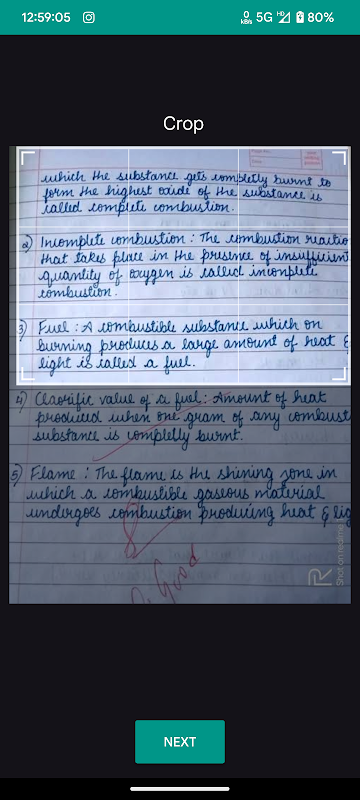 12:59:05
0 kB/s 5G HD 80%
Crop
which the substance gets completly burnt to
form the highest oxide of the substance is
called complete combustion.
2) Incomplete combustion : The combustion reactio
that takes place in the presence of insufficient
quantity of oxygen is called incomplete
combustion.
3) Fuel : A combustible substance which on
burning produces a large amount of heat &
light is called a fuel.
4) Claorific value of a fuel : Amount of heat
produced when one gram of any combust
substance is completly burnt.
5) Flame : The flame is the shining zone in
which a combustible gaseous material
undergoes combustion producing heat & lig
Good
Shot on realme
NEXT